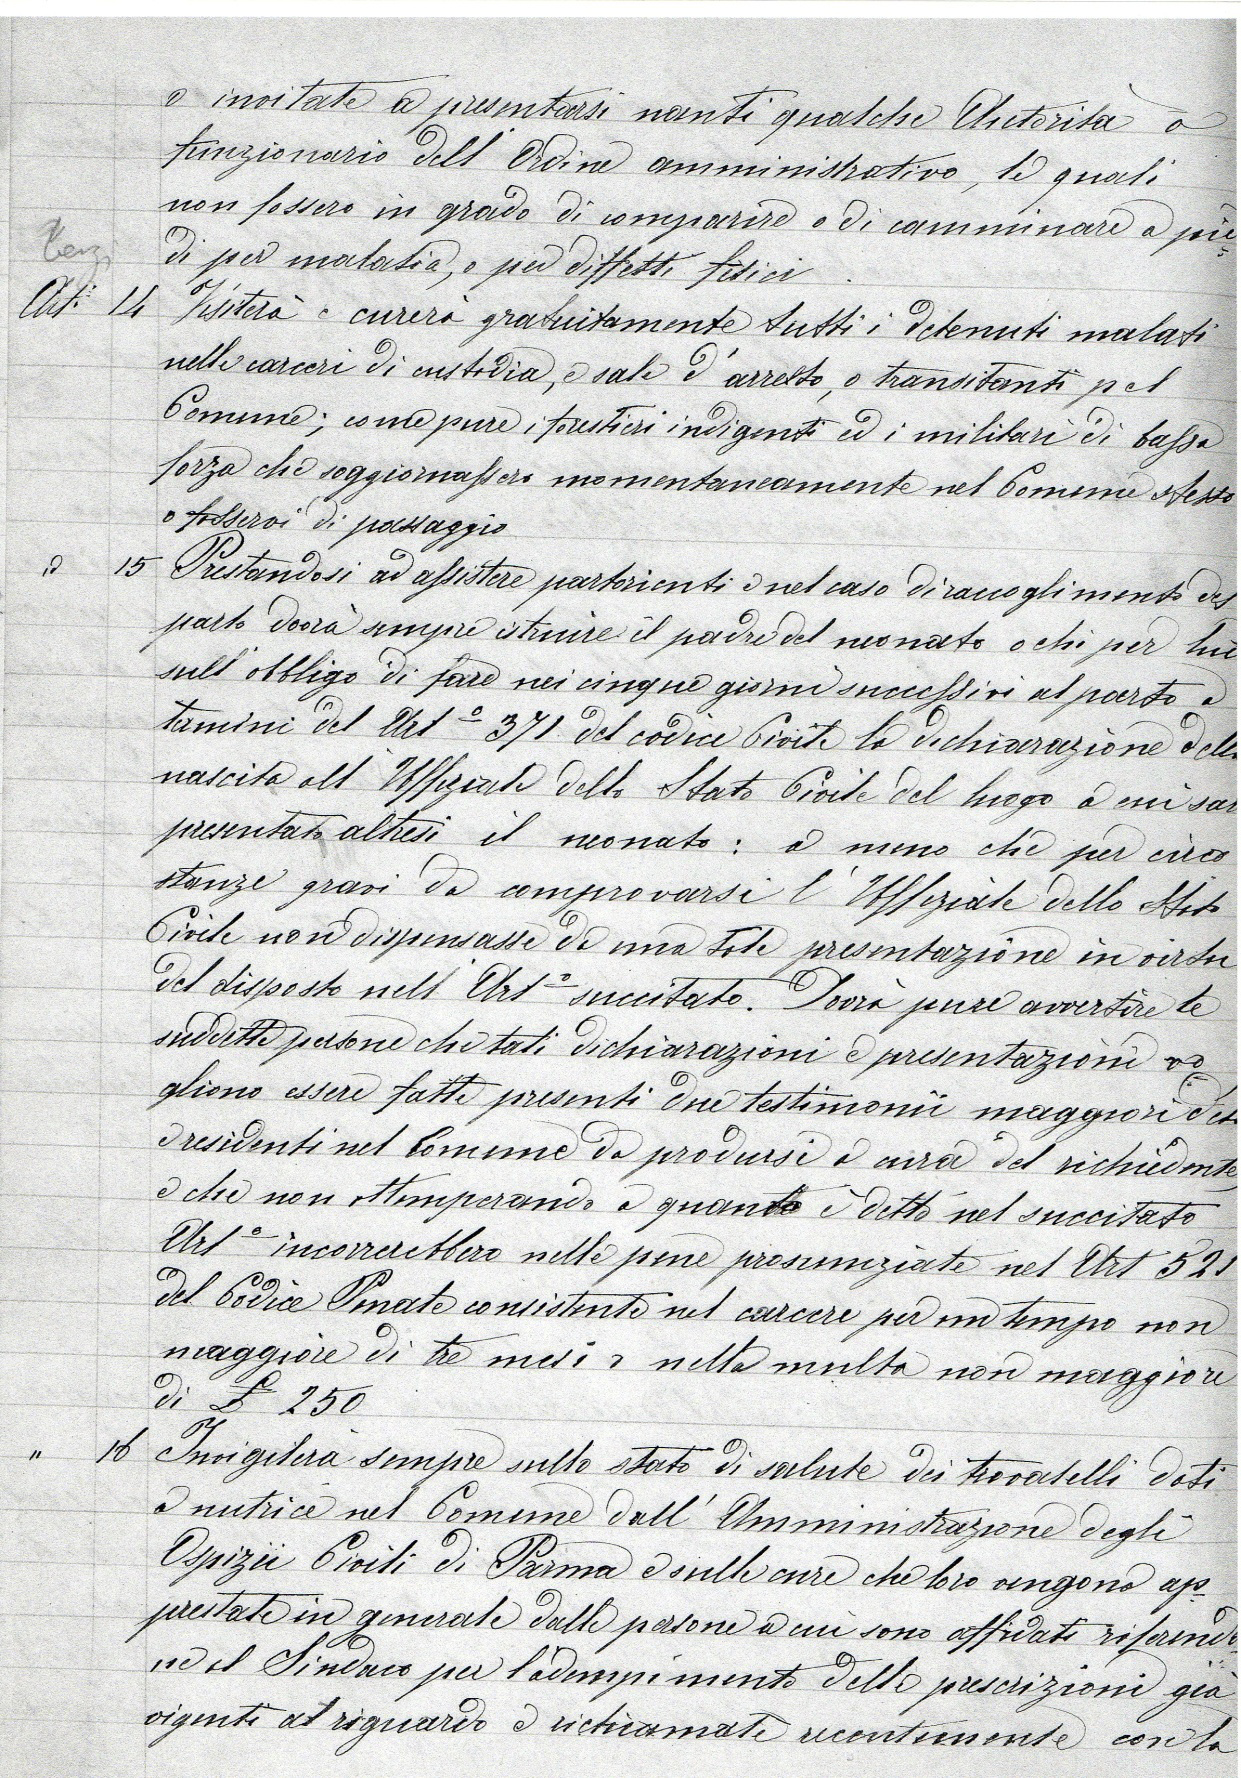 o invitate a presentarsi nanti qualche Autorità o
funzionario dell'Ordine amministrativo, le quali
non fossero in grado di comparire o di camminare a pie-
di per malatia, o per diffetti fisici.
Terzi
Art.° 14 Visiterà e curerà gratuitamente tutti i detenuti malati
nelle carceri di custodia, e sale d'arresto, o transitanti pel
Comune; come pure i forestieri indigenti ed i militari di bassa
forza che soggiornassero momentaneamente nel Comune stesso
o fosservi di passaggio
id 15 Prestandosi ad assistere partorienti e nel caso di raccoglimento del
parto dovrà sempre istruire il padre del neonato o chi per lui
sull'obbligo di fare nei cinque giorni successivi al parto a
tamini del Art° 371 del codice Civile la dichiarazione della
nascita all'Uffiziale dello Stato Civile del luogo a cui sar
presentato altresì il neonato: a meno che per circo
stanze gravi da comprovarsi l'Uffiziale dello Stato
Civile non dispensasse da una tale presentazione in virtu
del disposto nell'Art° succitato. Dovrà pure avvertire le
suddette persone che tali dichiarazioni e presentazioni vo-
gliono essere fatte presenti due testimonii maggiori d'età
e residenti nel Comune da prodursi a cura del richiedente
e che non ottemperando a quanto è detto nel succitato
Art° incorrerebbero nelle pene pronunziate nel Art 521
del Codice Penale consistente nel carcere per un tempo non
maggiore di tre mesi e nella multa non maggiore
di £ 250
" 16 Invigilerà sempre sullo stato di salute dei trovatelli dati
a nutrice nel Comune dall'Amministrazione degli
Ospizii Civili di Parma e sulle cure che loro vengono ap-
prestate in generale dalle persone a cui sono affidati riferendo
ne al Sindaco per l'adempimento delle prescrizioni già
vigenti al riguardo e richiamate recentemente con la